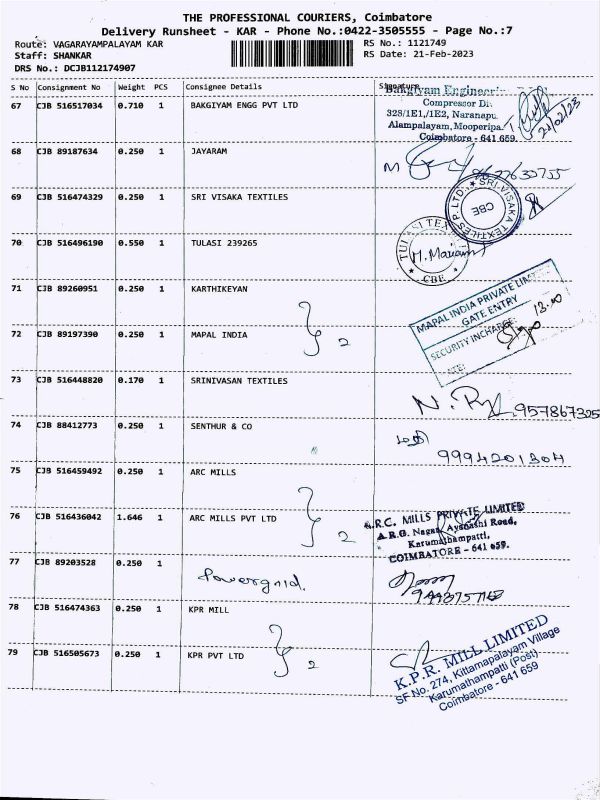 THE PROFESSIONAL COURIERS, Coimbatore
Delivery Runsheet - KAR - Phone No.:0422-3505555 - Page No.:7
Route: VAGARAYAMPALAYAM KAR
RS No.: 1121749
Staff: SHANKAR
RS Date: 21-Feb-2023
DRS No.: DCJB112174907
S No Consignment No Weight PCS Consignee Details Signature
67 CJB 516517034 0.710 1 BAKGIYAM ENGG PVT LTD
Bakgiyam Engineer
Compressor Di
328/1E1,/1E2, Naranapu
Alampalayam, Mooperipa
Coimbatore - 641 659.
21/02/23
68 CJB 89187634 0.250 1 JAYARAM
69 CJB 516474329 0.250 1 SRI VISAKA TEXTILES
SRI VISAKA TEXTILES P LTD.,
CBE
70 CJB 516496190 0.550 1 TULASI 239265
TULASI TEX
M. Mariam
CBE
71 CJB 89260951 0.250 1 KARTHIKEYAN
72 CJB 89197390 0.250 1 MAPAL INDIA
2
MAPAL INDIA PRIVATE LIM
GATE ENTRY
13.00
SECURITY INCHARGE
73 CJB 516448820 0.170 1 SRINIVASAN TEXTILES
957867325
74 CJB 88412773 0.250 1 SENTHUR & CO
9994201304
75 CJB 516459492 0.250 1 ARC MILLS
76 CJB 516436042 1.646 1 ARC MILLS PVT LTD
2
A.R.C. MILLS PRIVATE LIMITED
A.R.G. Nagar, Ayshashi Road,
Karumathampatti,
COIMBATORE - 641 659.
77 CJB 89203528 0.250 1
Powergrid.
78 CJB 516474363 0.250 1 KPR MILL
79 CJB 516505673 0.250 1 KPR PVT LTD
2
K.P.R. MILL LIMITED
SF No. 274, Kittampalayam Village
Karumathampatti (Post)
Coimbatore - 641 659